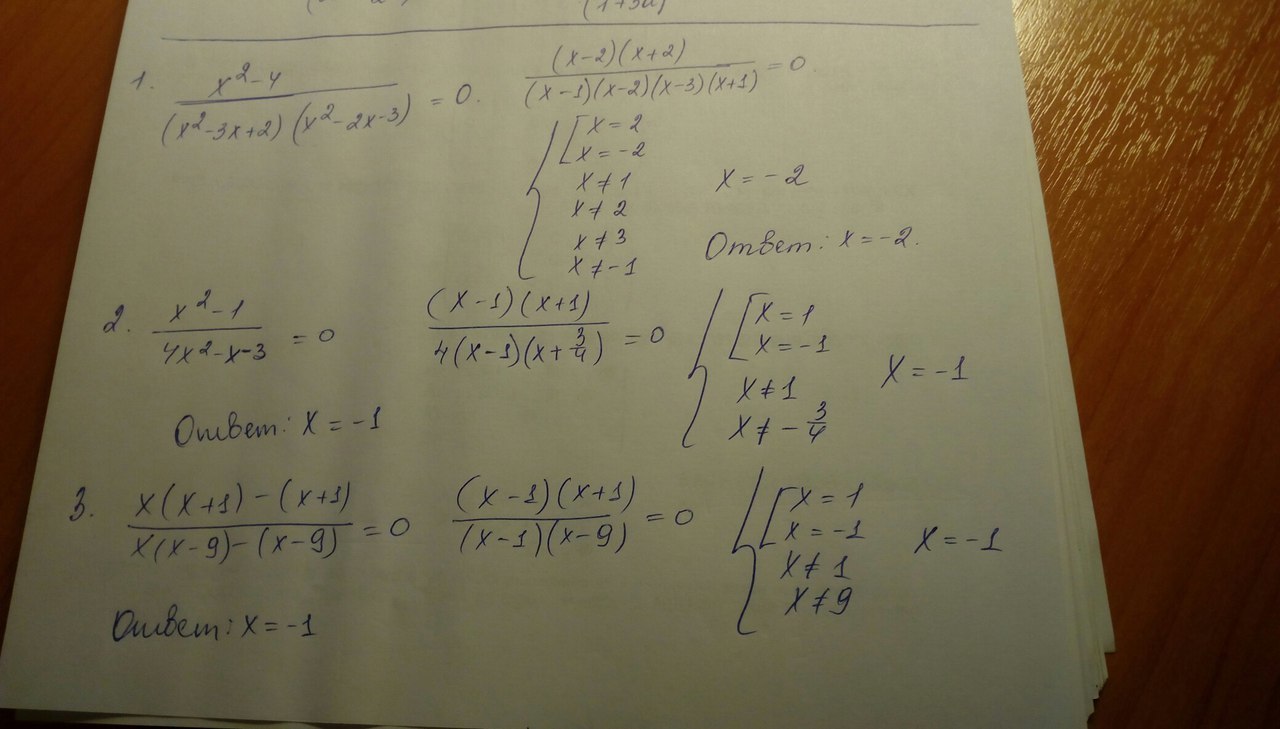 (1+3a)
1. (x²-4)/((x²-3x+2)(x²-2x-3)) = 0. ((x-2)(x+2))/((x-1)(x-2)(x-3)(x+1)) = 0.
{ [ x = 2
x = -2
x ≠ 1
x ≠ 2
x ≠ 3
x ≠ -1
x = -2
Ответ: x = -2.
2. (x²-1)/(4x²-x-3) = 0 ((x-1)(x+1))/(4(x-1)(x+3/4)) = 0
{ [ x = 1
x = -1
x ≠ 1
x ≠ -3/4
x = -1
Ответ: x = -1
3. (x(x+1)-(x+1))/(x(x-9)-(x-9)) = 0 ((x-1)(x+1))/((x-1)(x-9)) = 0
{ [ x = 1
x = -1
x ≠ 1
x ≠ 9
x = -1
Ответ: x = -1